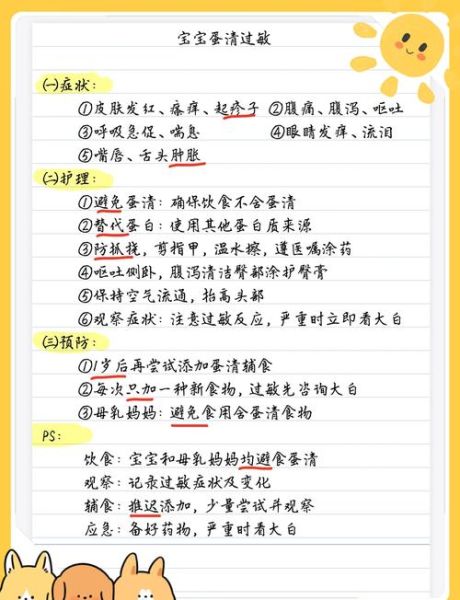 宝宝蛋清过敏
(一)症状:
①皮肤发红、瘙痒、起疹子 ②腹痛、腹泻、呕吐
③呼吸急促、喘息 ④眼睛发痒、流泪
⑤嘴唇、舌头肿胀
(二)护理:
①避免蛋清: 确保饮食不含蛋清
②替代蛋白: 使用其他蛋白质来源
③防抓挠, 剪指甲, 温水擦, 遵医嘱涂药
④呕吐侧卧, 腹泻清洁臀部涂护臀膏
⑤保持空气流通, 抬高头部
⑥观察症状: 注意过敏反应, 严重时立即看大白
(三)预防:
①1岁后再尝试添加蛋清辅食
②每次只加一种新食物, 过敏先咨询大白
③母乳妈妈: 避免食用含蛋清食物
PS:
饮食: 宝宝和母乳妈妈均避食蛋清
观察: 记录过敏症状及变化
辅食: 推迟添加, 少量尝试并观察
应急: 备好药物, 严重时看大白